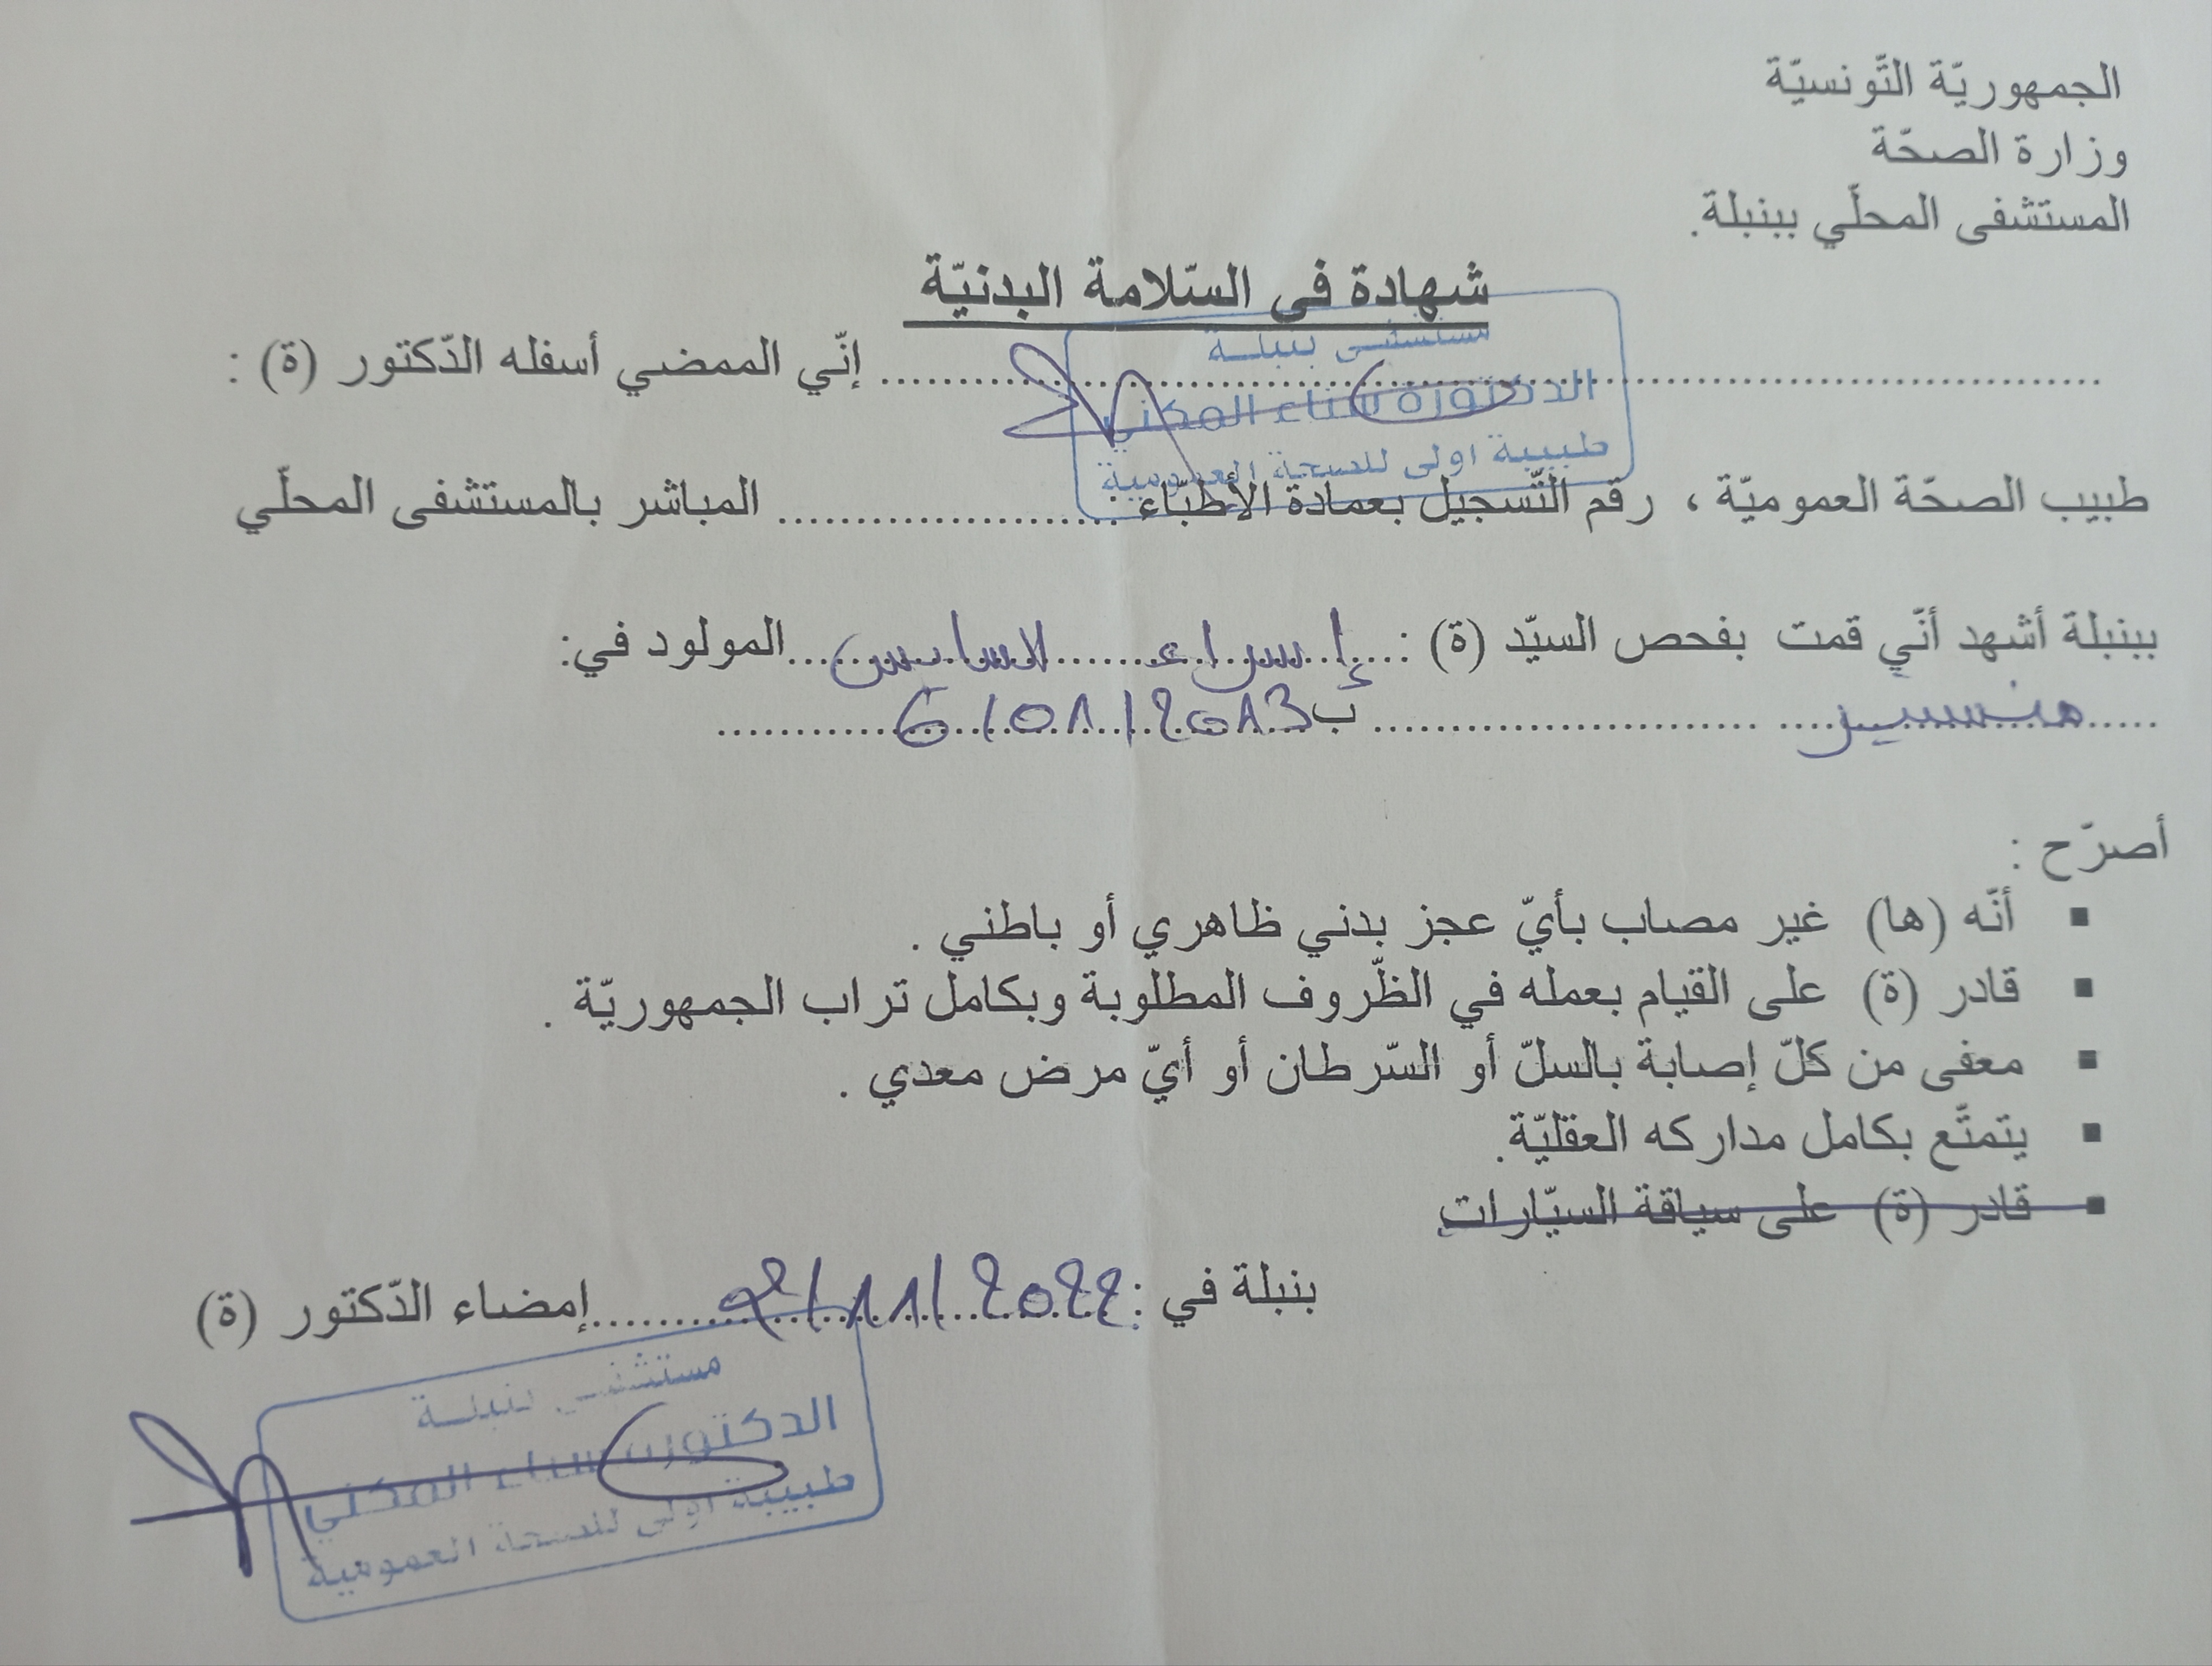 الجمهوريّة التّونسيّة
وزارة الصحّة
المستشفى المحلّي ببنبلة.
شهادة في السّلامة البدنيّة
إنّي الممضي أسفله الدّكتور (ة) :
مستشفى بنبلة
الدكتورة سناء المكني
طبيبة اولى للصحة العمومية
طبيب الصحّة العموميّة ، رقم التّسجيل بعمادة الأطبّاء ...................... المباشر بالمستشفى المحلّي
ببنبلة أشهد أنّي قمت بفحص السيّد (ة) : إسراء لاسايس المولود في:
6/01/2013 ب
أصرّح :
▪ أنّه (ها) غير مصاب بأيّ عجز بدني ظاهري أو باطني .
▪ قادر (ة) على القيام بعمله في الظّروف المطلوبة وبكامل تراب الجمهوريّة .
▪ معفى من كلّ إصابة بالسلّ أو السّرطان أو أيّ مرض معدي .
▪ يتمتّع بكامل مداركه العقليّة.
▪ قادر (ة) على سياقة السيّارات
بنبلة في : 2/11/2022 إمضاء الدّكتور (ة)
مستشفى بنبلة
الدكتورة سناء المكني
طبيبة اولى للصحة العمومية